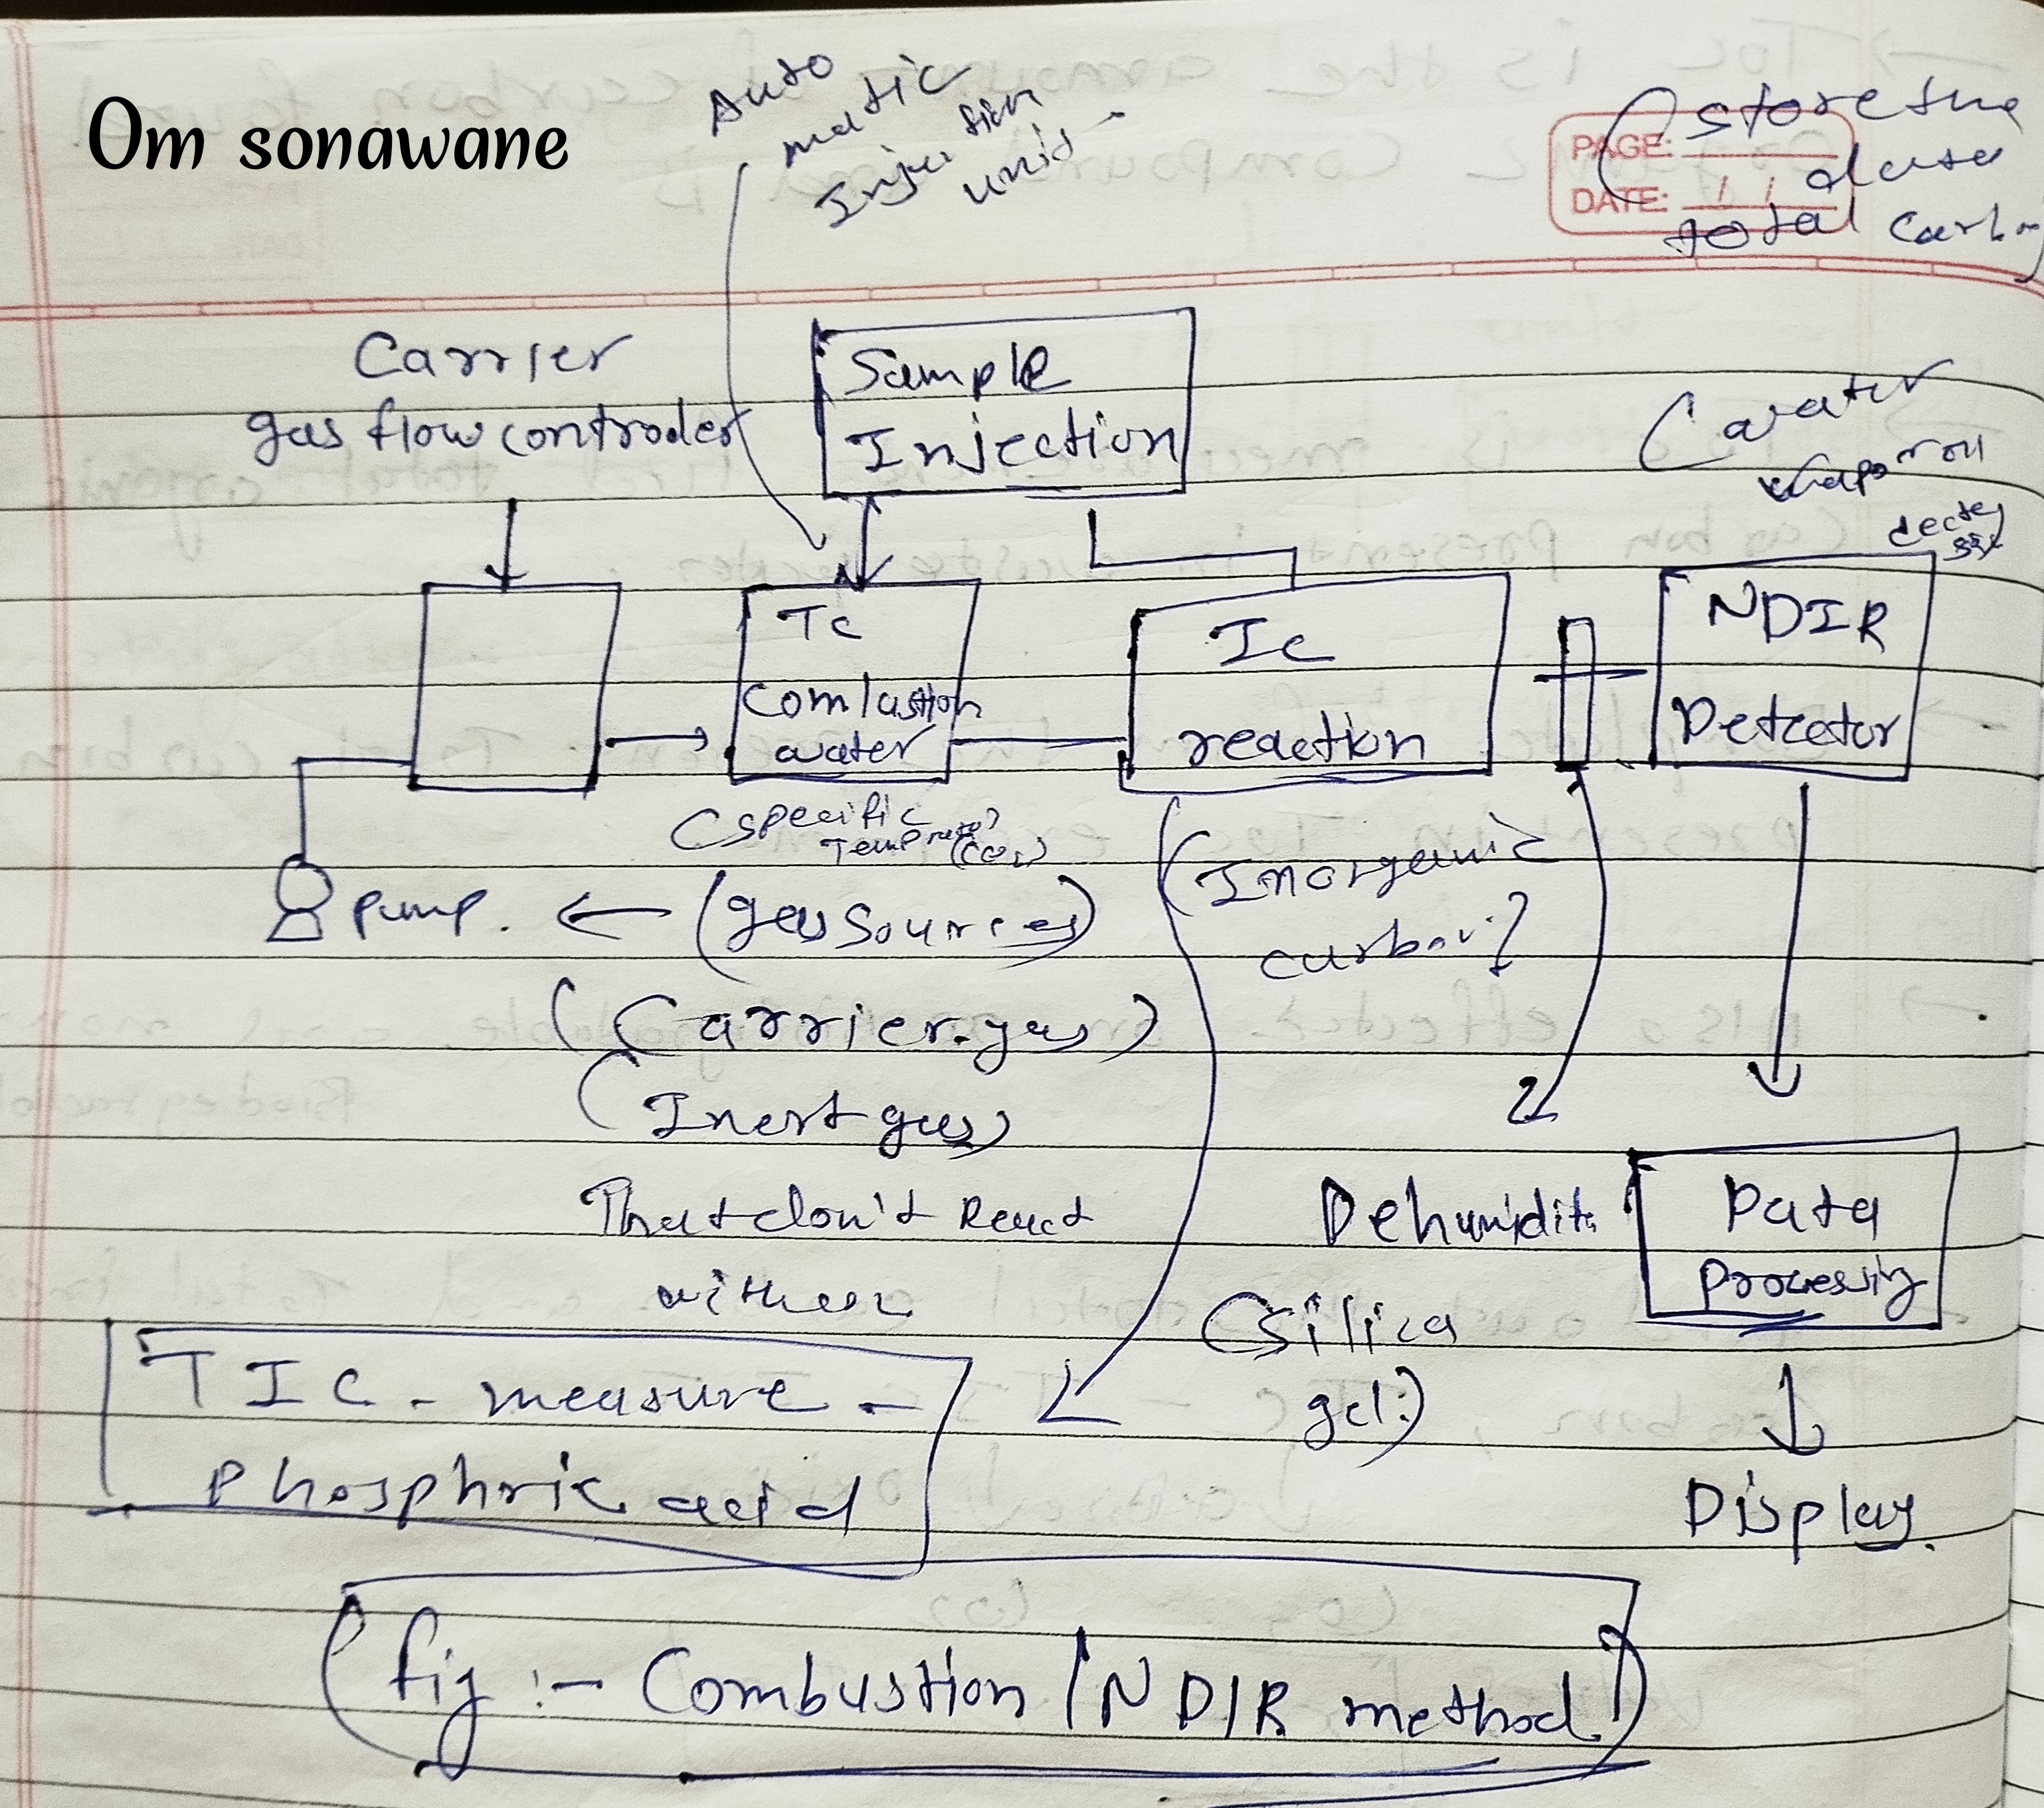 Om sonawane
Auto
matic
Injection
unit
PAGE:
DATE: / /
(store the
data
total carbon)
Carrier
gas flow controder
Sample
Injection
(water
decte
NDIR
Detector
Tc
Comlastion
water
Ic
reaction
(specific
Temprature)
(Inorganic
carbon)
pump. ← (gas sources)
(Carrier gas)
(Inert gas)
That don't React
with
Dehumidit
(silica
gel:)
Data
Processing
Display.
TIC - measure -
Phosphric acid
(fig :- Combustion / NDIR method)